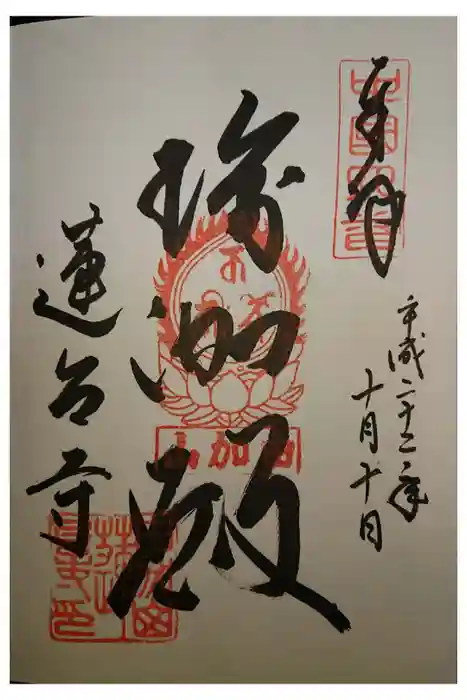 奉拝
平成二十二年
十月十日
瑜伽殿
由加山
蓮台寺